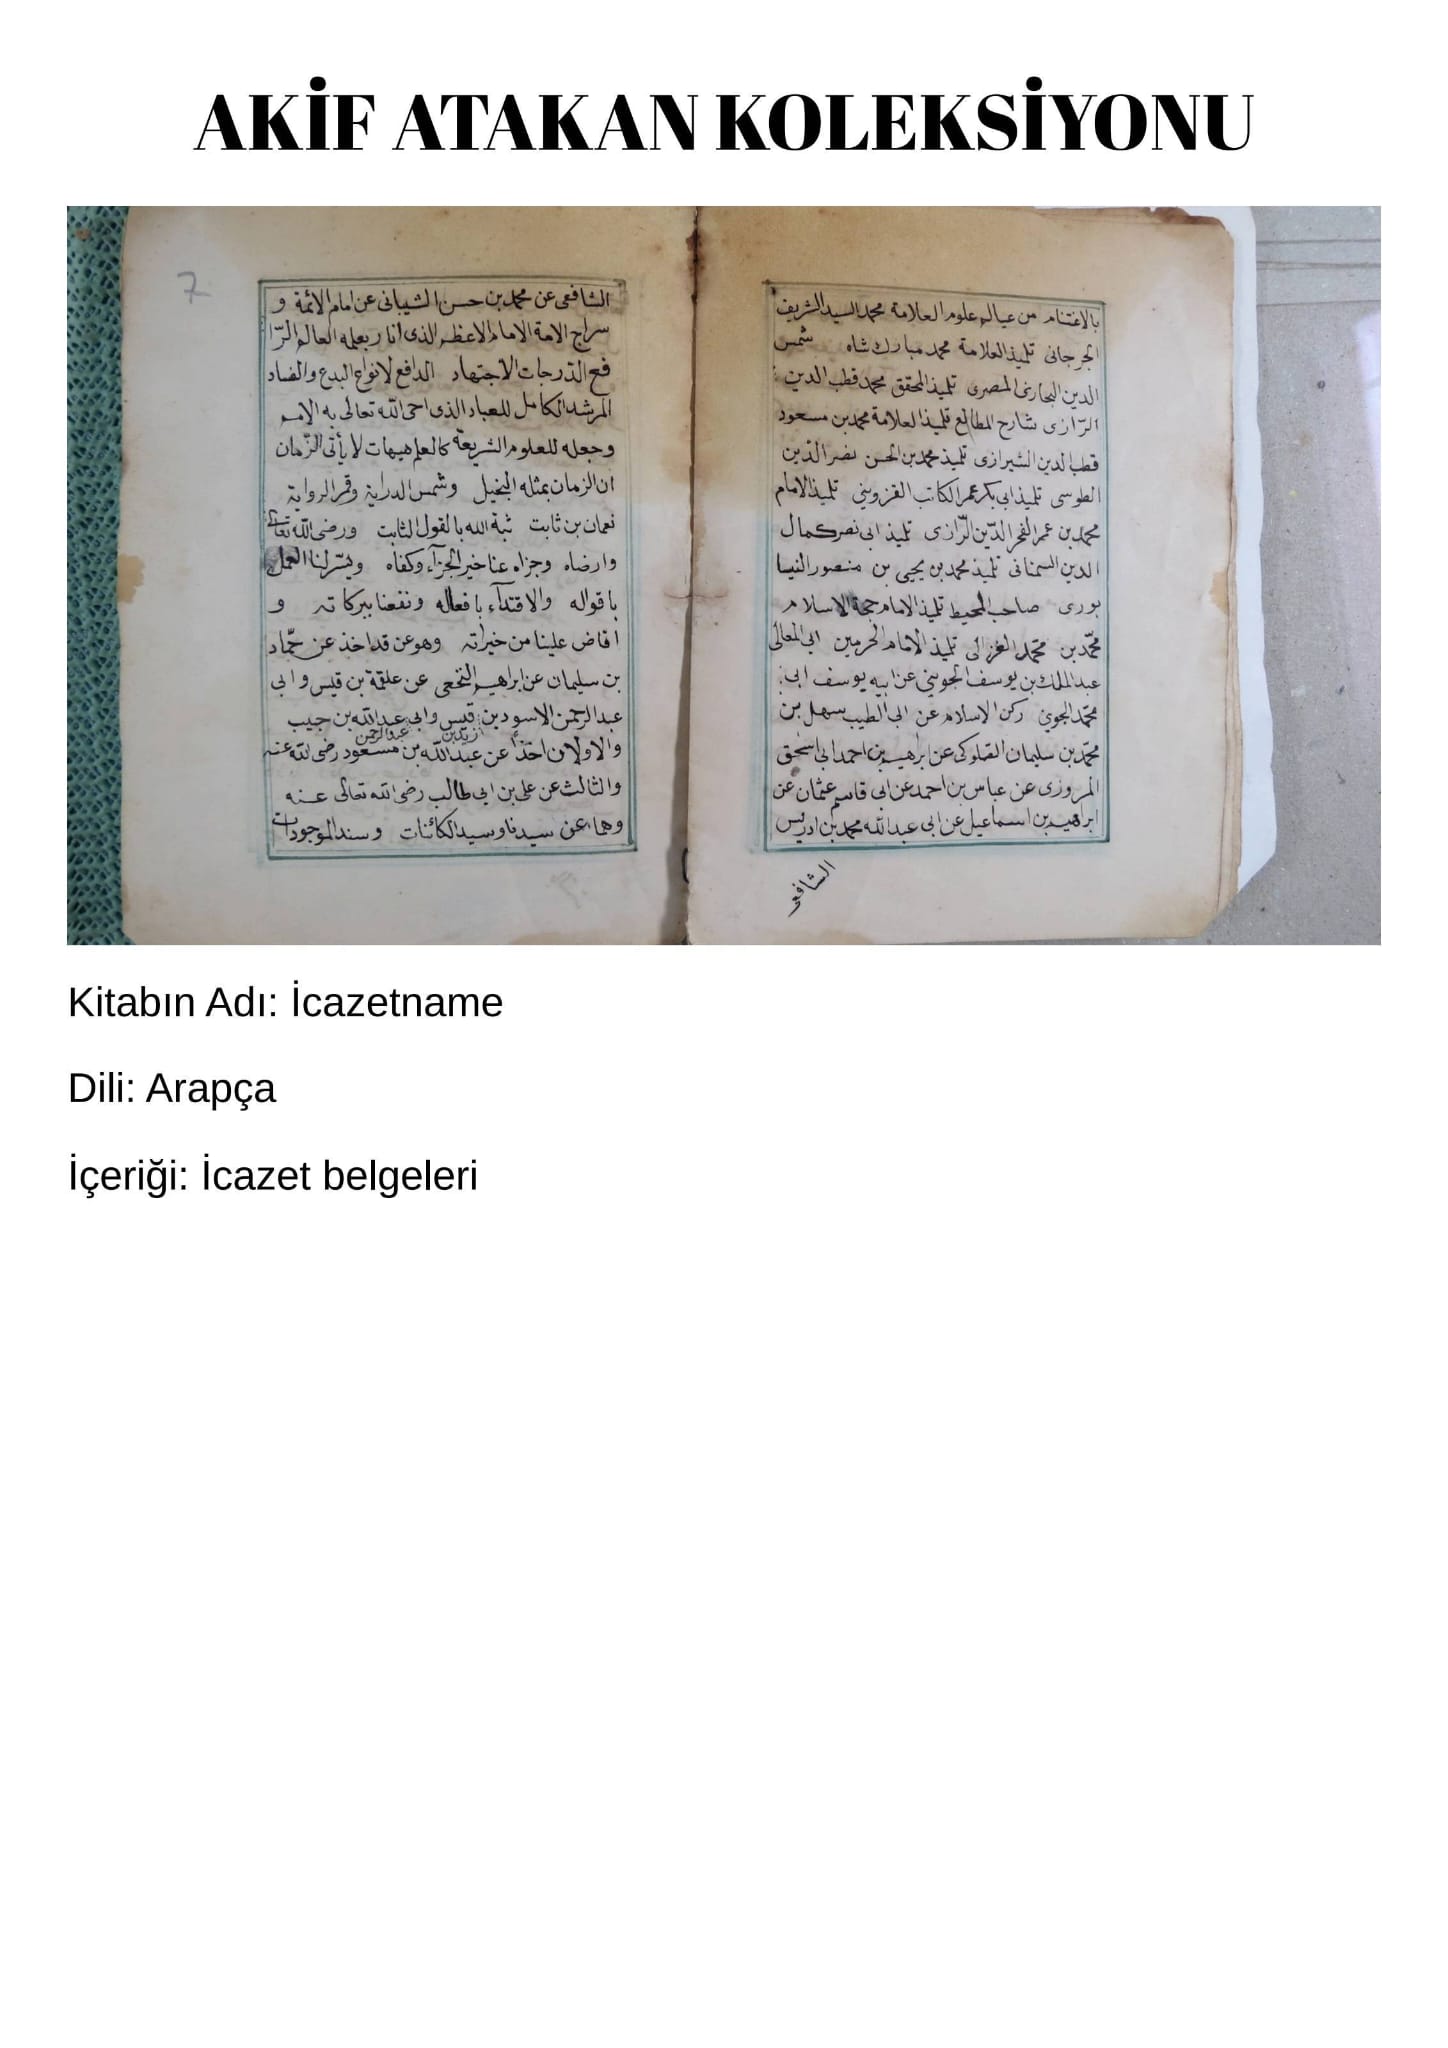 AKİF ATAKAN KOLEKSİYONU
بالاغتنام من عيالم علوم العلامة محمد السيد الشريف
الجرجانى تلميذ العلامة محمد مبارك شاه شمس
الدين البخارى المصرى تلميذ المحقق محمد قطب الدين
الرّازى شارح المطالع تلميذ العلامة محمد بن مسعود
قطب الدين الشيرازى تلميذ محمد بن الحسن نصر الدّين
الطوسى تلميذ ابى بكر عمر الكاتب القزوينى تلميذ الامام
محمد بن عمر الفخر الدّين الرّازى تلميذ ابى نصر كمال
الدين السمنانى تلميذ محمد بن يحيى بن منصور النيسا
بورى صاحب المحيط تلميذ الامام حجة الاسلام
محّمد بن محّمد الغزالى تلميذ الامام الحرمين ابى المعالى
عبد الملك بن يوسف الجوينى عن ابيه يوسف ابى
محّمد الجوينى ركن الاسلام عن ابى الطيب سهل بن
محّمد بن سليمان الصلوكى عن ابرهيم بن احمد ابى اسحق
المروزى عن عباس بن احمد عن ابى قاسم عثمان عن
ابرهيم بن اسماعيل عن ابى عبد الله محمد بن ادريس
الشافعى
7
الشافعى عن محمد بن حسن الشيبانى عن امام الائمة و
سراج الامة الامام الاعظم الذى انار بعلمه العالم الرّا
فع الدّرجات الاجتهاد الدافع لانواع البدع والفساد
المرشد الكامل للعباد الذى احى الله تعالى به الامم
وجعله للعلوم الشريعة كالعلم هيهات لا يأتى الزّمان
ان الزمان بمثله لبخيل وشمس الدراية وقمر الرواية
نعمان بن ثابت ثبة الله بالقول الثابت ورضى الله تعالى
وارضاه وجزاه عنا خير الجزآء وكفاه ويسّر لنا العمل
باقواله والاقتدآء بافعاله ونفعنا ببركاته و
افاض علينا من خيراته وهو عن قد اخذ عن حمّاد
بن سليمان عن ابراهيم النخعى عن علقمة بن قيس و ابى
عبد الرحمن الاسود بن قيس وابى عبد الله بن حبيب
عبد الرحمن
والاولان اخذا عن عبد الله بن مسعود رضى الله عنه
والثالث عن على بن ابى طالب رضى الله تعالى عنه
وهما عن سيدنا وسيد الكائنات وسند الموجودات
Kitabın Adı: İcazetname
Dili: Arapça
İçeriği: İcazet belgeleri